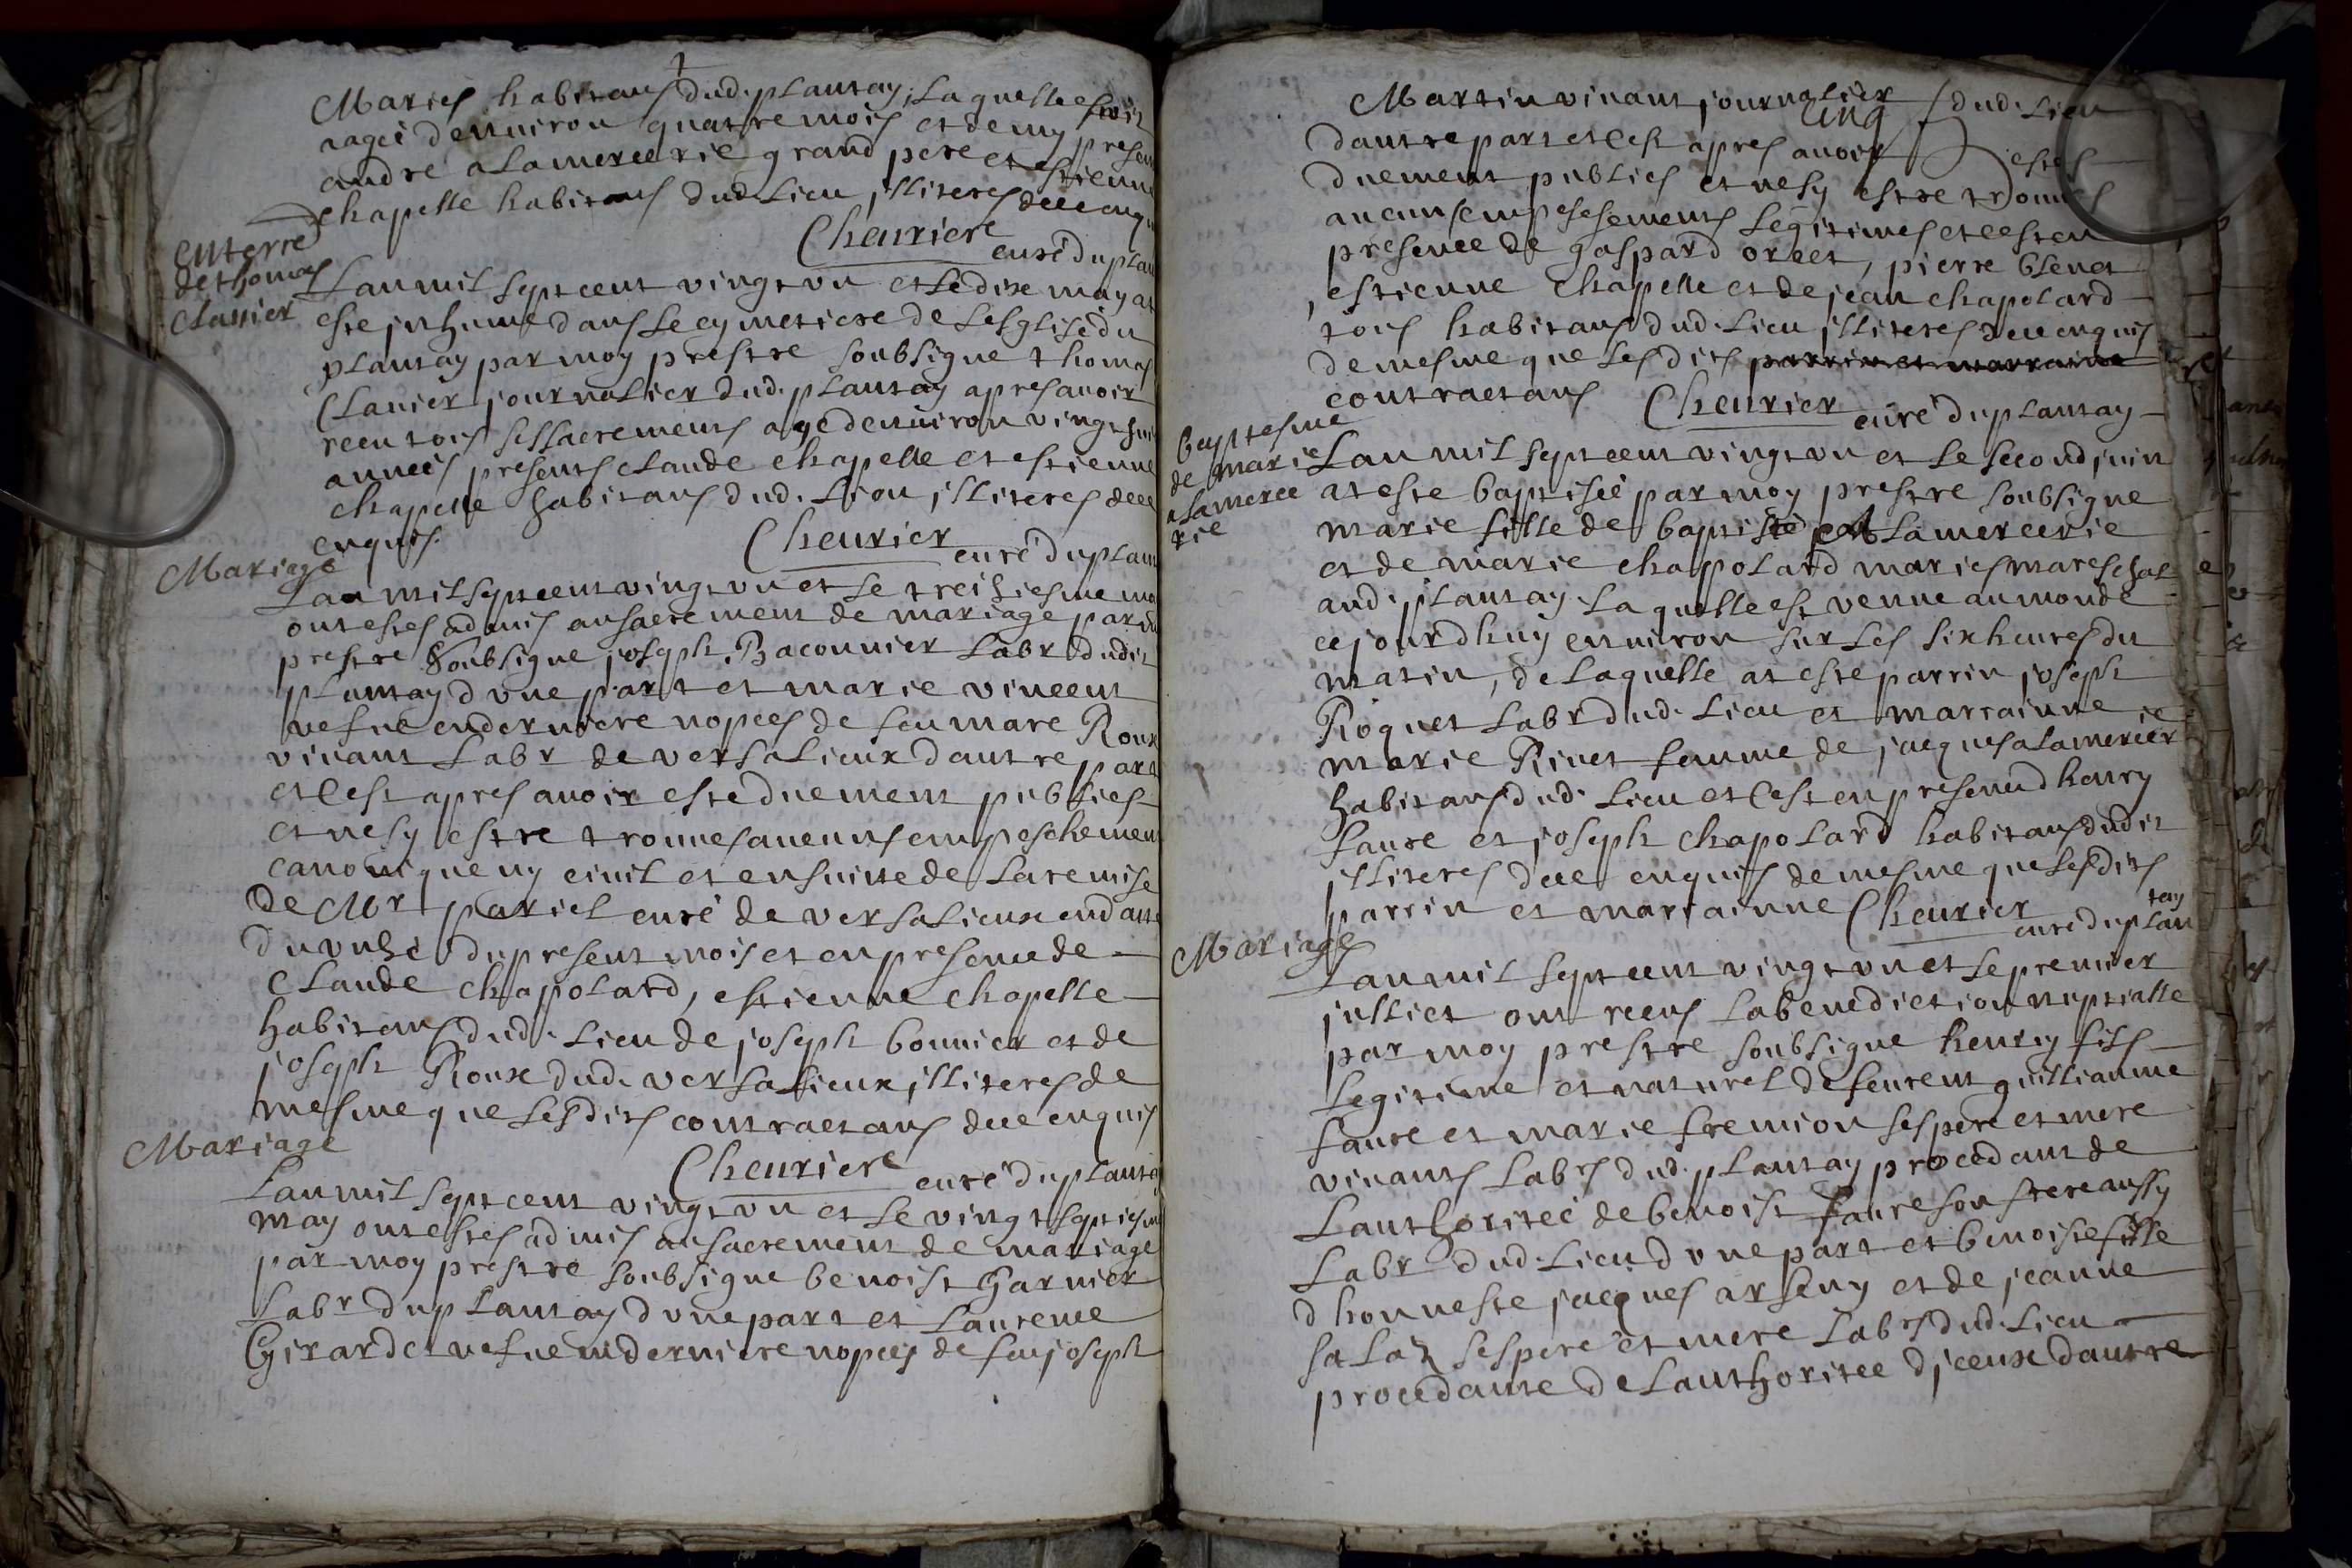 Maries habitans dud. plantay, laquelle estoit
aagée denuiron quatre mois et demy presen
andre alamercerie grand pere et estienne
chapelle habitans dud. lieu illiteres dee enqu
Cheuriere
curé du plan
enterre
de thomas
clanier
Lan mil sept cent vingt vn et le dixe may at
este inhumé dans le cymetiere de lesglise du
plantay par moy prestre soubsigne thomas
Clanier journalier dud. plantay apres avoir
receu tous ses sacremens agé denuiron vingt
années presents claude chapelle et estienne
chapelle habitans dud. lieu illiteres dee
enquis.
Cheurier
curé du plan
Mariage
Lan mil sept cent vingt vn et le treiziesme ma
ont estes admis au sacrement de mariage par
prestre soubsigne joseph Baconnier labr dudit
plantay d vne part et marie vincent
vefue en derniere nopces de feu marc Roux
viuant labr de versalieux dautre part
et cest apres auoir este duement publies
et nesy estre trouues aucuns empeschemen
canonique ny ciuil et ensuitte de la remise
de Mr pariel curé de versalieux en datte
du vnzé du present mois et en presence de
claude chapolard, estienne chapelle
habitans dud. lieu de joseph bonnier et de
joseph Roux dud. versalieux illiteres de
mesme que lesdits contractans dee enquis
Cheuriere
curé du planta
Mariage
Lan mil sept cent vingt vn et le vingt septiesm
may ont estes admis au sacrement de mariage
par moy prestre soubsigne benoist Garnier
labr du plantay d vne part et laurence
Girardet vefue en derniere nopces de feu joseph
Martin viuant journalier dud. lieu
dautre part et cest apres auoir estes
duement publies et nesy estre trouués
aucuns empesesements legitimes et cest en
presence de gaspard orcet, pierre blenet
estienne chapelle et de jean chapolard
tous habitans dud. lieu illiteres dee enquis
de mesme que lesdits parrin et marraine
contractans
Cheurier
curé du plantay
baptesme
de marie
alamerce
rie
Lan mil sept cent vingt vn et le second juin
at este baptisée par moy prestre soubsigne
marie fille de baptiste alamercerie
et de marie chapolard maries mareschal
aud. plantay. laquelle est venue au monde
ce jourdhuy enuiron sur les six heures du
matin, de laquelle at este parrin joseph
Roquet labr dud. lieu et marrainne
marie Riuet femme de jacques alamercerie
habitans dud. lieu et cest en presence d henry
faure et joseph chapolard habitans dudit
illiteres dee enquis de mesme que lesdits
parrin et marrainne Cheurier
curé du plantay
Mariage
Lan mil sept cent vingt vn et le premier
julliet ont receus la benediction nuptialle
par moy prestre soubsigne henry fils
legitime et naturel de feurent guillianme
faure et marie fremion ses pere et mere
viuants labrs dud. plantay procedant de
lauthoritée de benoist faure son frere aussy
labr dud. lieu d vne part et benoiste fille
d honneste jacques arseny et de jeanne
salaz ses pere et mere labrs dud. lieu
procedante de lauthoritee d jceux dautre